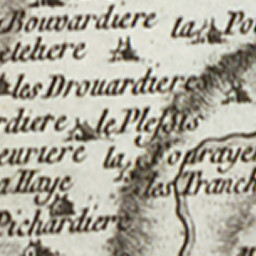 Bouvardiere la Po
etehere
les Drouardieres
rdiere le Plessis
euriere la Poprayer
a Haye les Tranch
Pichardiere